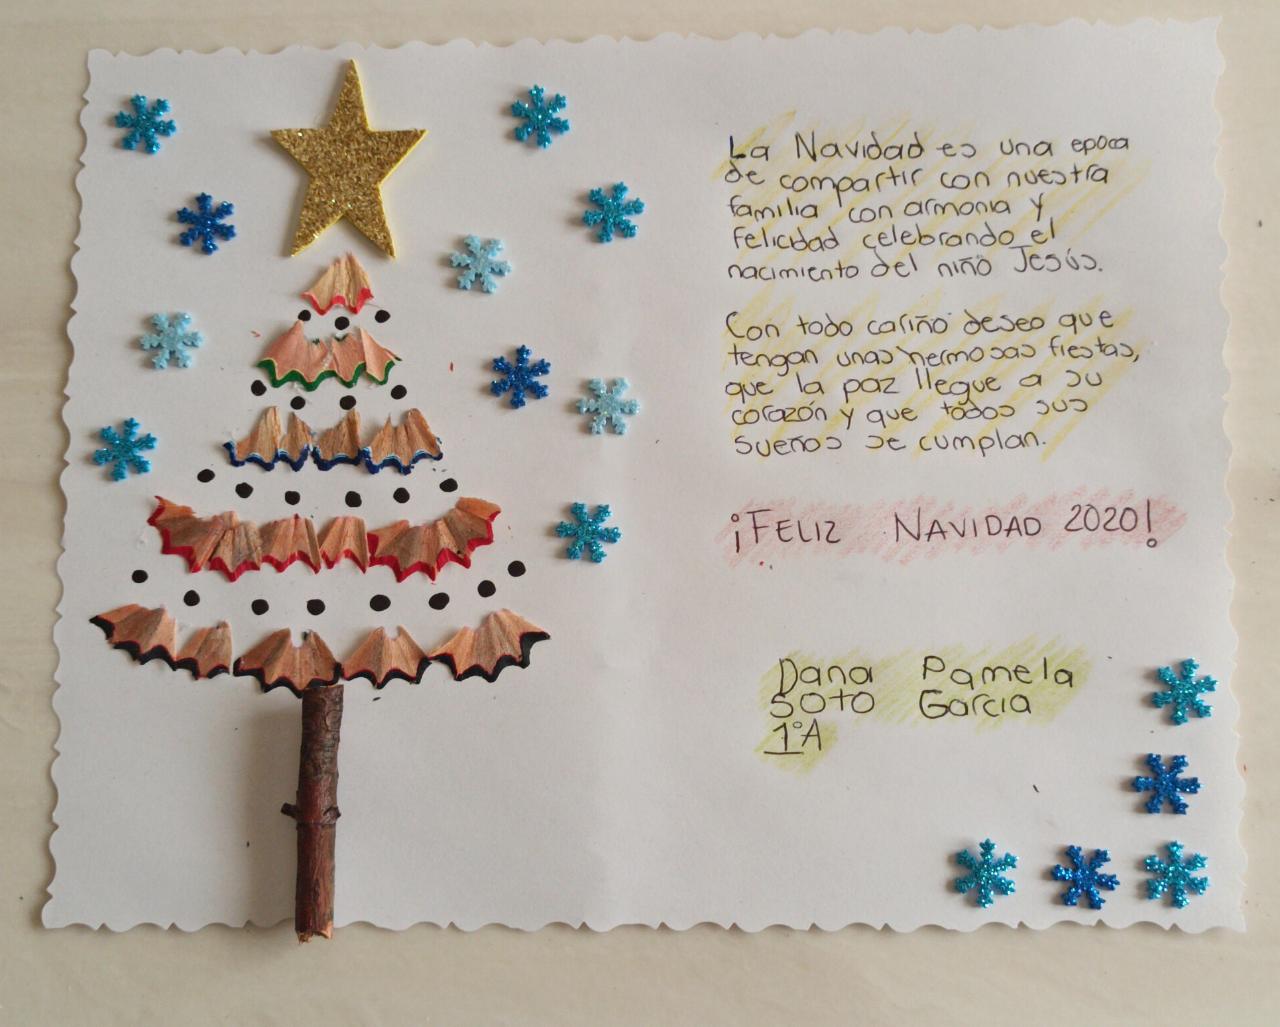 La Navidad es una epoca
de compartir con nuestra
familia con armonia y
felicidad celebrando el
nacimiento del niño Jesús.
Con todo cariño deseo que
tengan unas hermosas fiestas,
que la paz llegue a su
corazón y que todos sus
sueños se cumplan.
¡FELIZ NAVIDAD 2020!
Dana Pamela
Soto Garcia
1°A